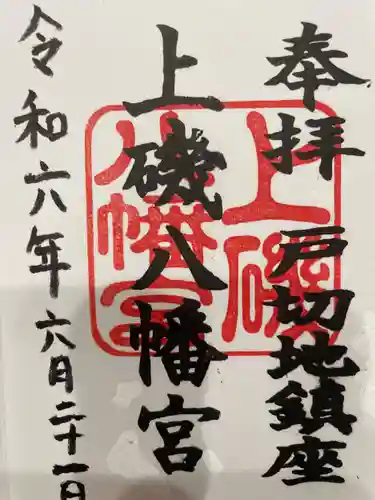 奉拝 戸切地鎮座
上磯八幡宮
令和六年六月二十一日
上磯
八幡宮